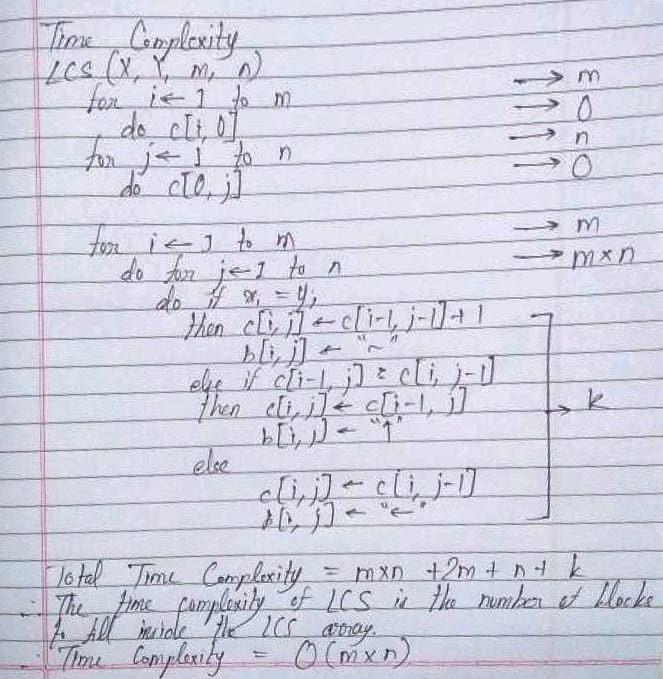 Time Complexity
LCS (X, Y, m, n)
for i ← 1 to m → m
do c[i, 0] → 0
for j ← 1 to n → n
do c[0, j] → 0
for i ← 1 to m → m
do for j ← 1 to n → m×n
do if xi = yj
then c[i, j] ← c[i-1, j-1] + 1
b[i, j] ← "~"
else if c[i-1, j] ≥ c[i, j-1]
then c[i, j] ← c[i-1, j] → k
b[i, j] ← "↑"
else
c[i, j] ← c[i, j-1]
b[i, j] ← "←"
Total Time Complexity = m×n + 2m + n + k
∴ The time complexity of LCS is the number of blocks
to fill inside the LCS array.
∴ Time Complexity = O(m×n)